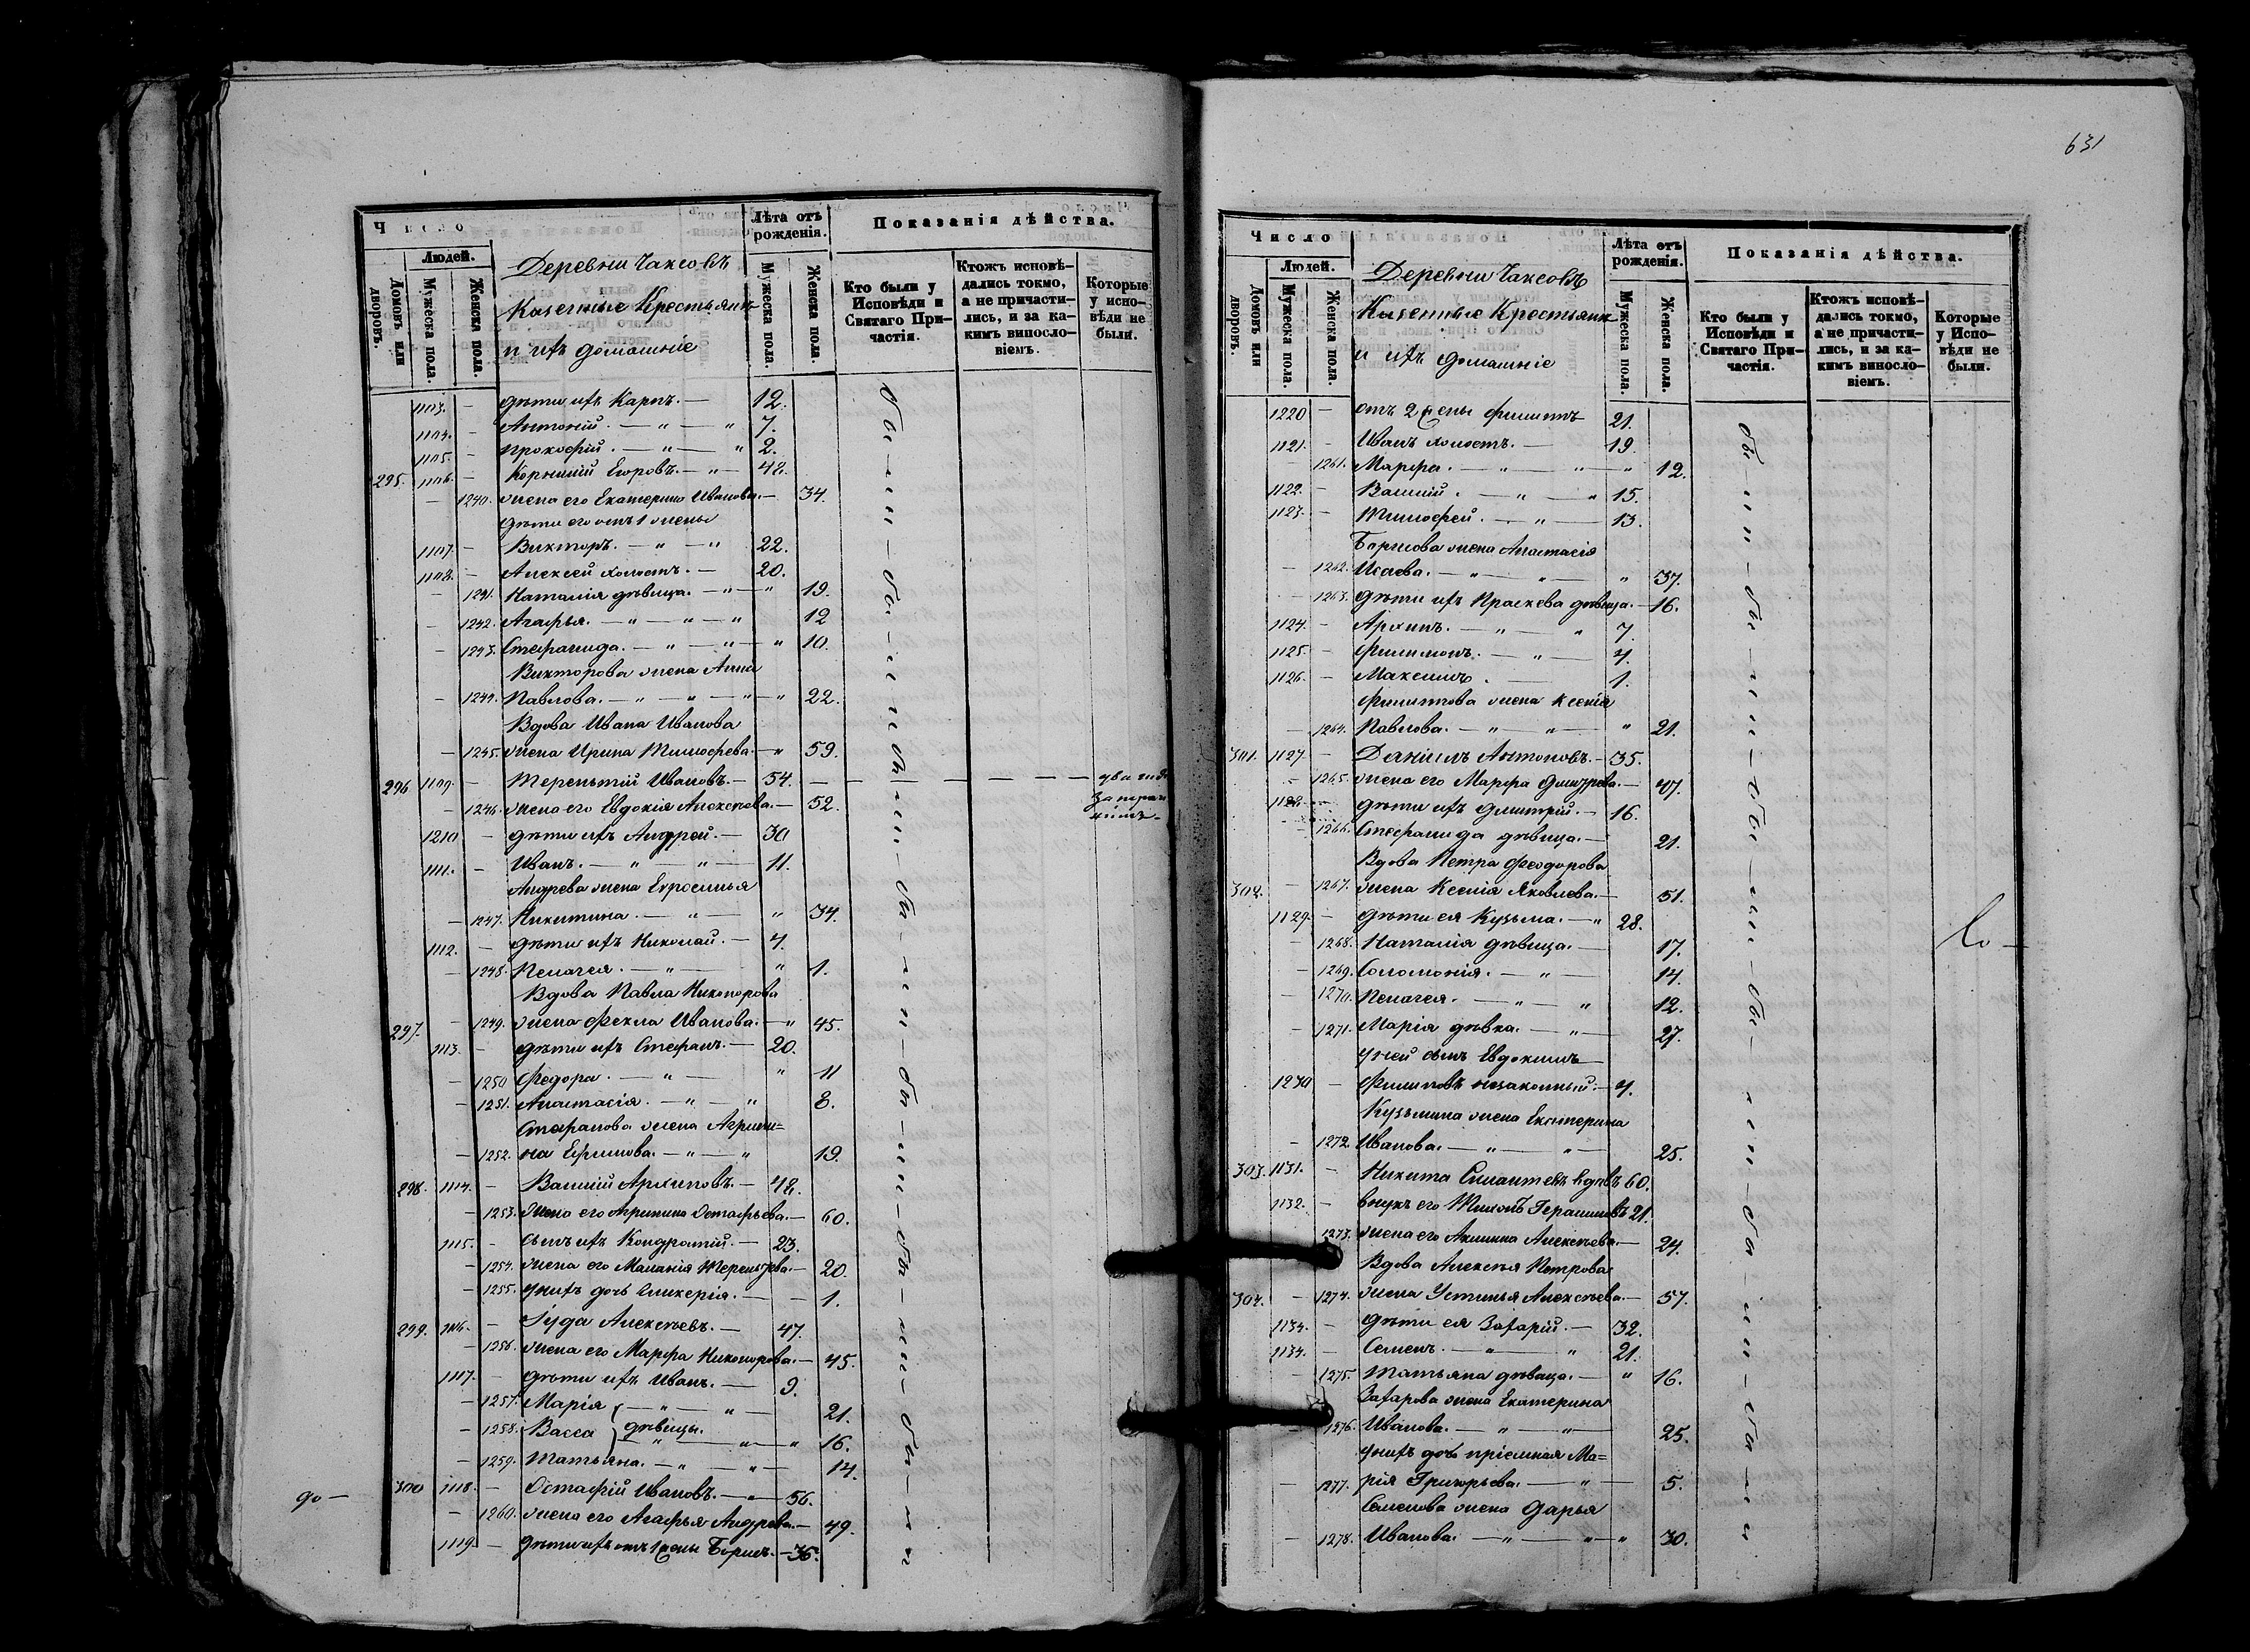 Число
Людей.
Домовъ или дворовъ.
Мужеска пола.
Женска пола.
Деревни Чаксовъ
Казенные Крестьяне
и ихъ домашніе
Лѣта отъ рожденія.
Мужеска пола.
Женска пола.
Показанія дѣйства.
Кто были у Исповѣди и Святаго Причастія.
Ктожъ исповѣдались токмо, а не причастились, и за какимъ винословіемъ.
Которые у исповѣди не были.
1103. - дѣти ихъ Карпъ. — 12.
1104. - Антоній. — " — " 7.
1105. - Прокофій. — " — " 2.
295. 1106. - Корнилій Егоровъ. — " — 42.
- 1240. жена его Екатерина Иванова. — 34.
дѣти его отъ 1 жены
1107. - Викторъ. — " — " 22.
1108. - Алексей холостъ. — 20.
- 1241. Наталія дѣвица. — " — " 19.
- 1242. Агафья. — " — " — " 12
- 1243. Стефанида. — " — " — " 10.
Викторова жена Анна
- 1244. Павлова. — " — " — " — " 22.
Вдова Ивана Иванова
- 1245. жена Ирина Тимофеева. — " 59.
296 1109. - Терентій Ивановъ. — 54. —
- 1246. жена его Евдокія Алексѣева. — 52.
1210 - дѣти ихъ Андрей. — 30
1111. - Иванъ. — " — " — 11.
Андреева жена Евросинья
- 1247. Никитина. — " — " 34.
1112. - дѣти ихъ Николай. — 4.
- 1248. Пелагея. — " — " 1.
Вдова Павла Никонорова
297. - 1249. жена Фекла Иванова. — " 45.
1113. - дѣти ихъ Стефанъ. — 20.
- 1250 Федора. — " — " 11
- 1251. Анастасія. — " — " 8.
Стефанова жена Агрипи=
- 1252. на Ефимова. — " — " 19.
298. 1114. - Василій Архиповъ. — 42.
- 1253. жена его Агрипина Остафьева. — 60.
1115. - сынъ ихъ Кондратій. — 23.
- 1254. жена его Маланія Терентьева. — 20.
- 1255. у нихъ дочь Гликерія. — - 1.
299. 1116. - Іуда Алексѣевъ. — 47.
- 1256. жена его Марфа Никонорова. — 45.
1117. - дѣти ихъ Иванъ. — 9.
- 1257. Марія — " — " — 21.
- 1258. Васса дѣвицы. — " — " — " 16.
- 1259. Татьяна. — " — " — 14.
до —
300 1118. - Остафій Ивановъ. — " — 56.
- 1260. жена его Агафья Андреева. — 49.
1119. - дѣти ихъ отъ 1 жены Борисъ. — 36.
631
Число
Людей.
Домовъ или дворовъ.
Мужеска пола.
Женска пола.
Деревни Чаксовъ
Казенные Крестьяне
и ихъ домашніе
Лѣта отъ рожденія.
Мужеска пола.
Женска пола.
Показанія дѣйства.
Кто были у Исповѣди и Святаго Причастія.
Ктожъ исповѣдались токмо, а не причастились, и за какимъ винословіемъ.
Которые у Исповѣди не были.
1220 - отъ 2 жены Филиппъ 21.
1121. - Иванъ холостъ. — 19.
- 1261. Марфа. — " — " — " 12.
1122. - Василій. — " — " 15.
1123. - Тимофей. — " — 13.
Борисова жена Анастасія
- 1262. Исаева. — " — " — " 37.
- 1263. дѣти ихъ Праскева дѣвица. — 16.
1124. - Архипъ. — " — " 7.
1125. - Филимонъ. — " — 4.
1126. - Максимъ. — 1.
Филиппова жена Ксенія
- 1264. Павлова. — " — " — " 21.
301. 1127. - Даніилъ Антоновъ. — 35.
- 1265. жена его Марфа Дмитрева. — 47.
1128. - дѣти ихъ Дмитрій. — 16.
- 1266. Стефанида дѣвица. — 21.
Вдова Петра Феодорова
302. - 1267. жена Ксенія Яковлева. — 51.
1129. - дѣти ея Кузьма. — " 28.
- 1268. Наталія дѣвица. — 17.
- 1269. Соломонія. — " — 14.
- 1270. Пелагея. — " — " 12.
- 1271. Марія дѣвка. — " — 27.
у ней сынъ Евдокимъ
1230 - Филиповъ незаконный. — 4.
Кузьмина жена Екатерина
- 1272. Иванова. — " — " — 25.
303. 1131. - Никита Силантьевъ вдовъ 60.
1132. - внукъ его Тихонъ Герасимовъ 21.
1273. жена его Акилина Алексѣева. — 24.
Вдова Алексѣя Петрова
304. - 1274. жена Устинья Алексѣева. — 57.
1134. - дѣти ея Захарій. — 32.
1134. - Семенъ. — " — " 21.
- 1275. Татьяна дѣвица. — " 16.
Захарова жена Екатерина
1276. Иванова. — " — " — 25.
у нихъ дочь пріемная Ма=
- 1277. рія Григорьева. — " — 5.
Семенова жена Дарья
- 1278. Иванова. — " — " — " 30.